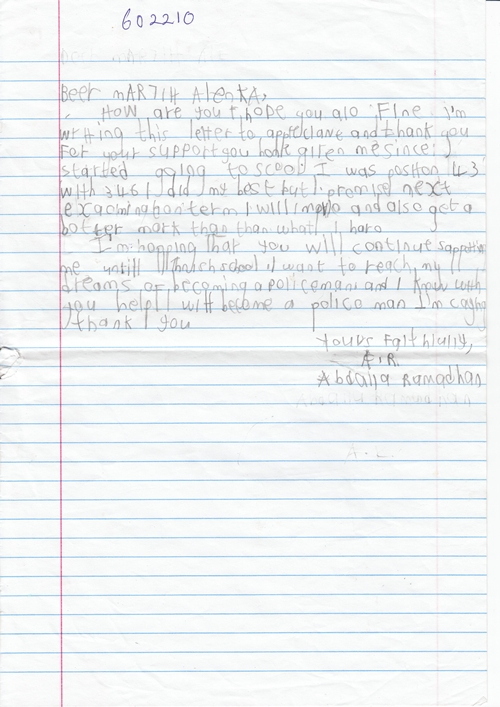 602210
Beer MARTIH AlenKA,
HOW are you I hope you alo Fine I'm
writing this letter to appleciane and thank you
For your support you have given me since I
started going to scool I was position 43
with 346 I did my best but I promise next
exaomination term I will impro and also get a
botter mark than than what I haro
I'm hopping that you will continue sapportin
me untill I Finish school I want to reach my
dreams of becoming a policeman and I know with
you help I will become a police man I'm
thank you
Yours Faithfully,
A.R.
Abdalla Ramadhan